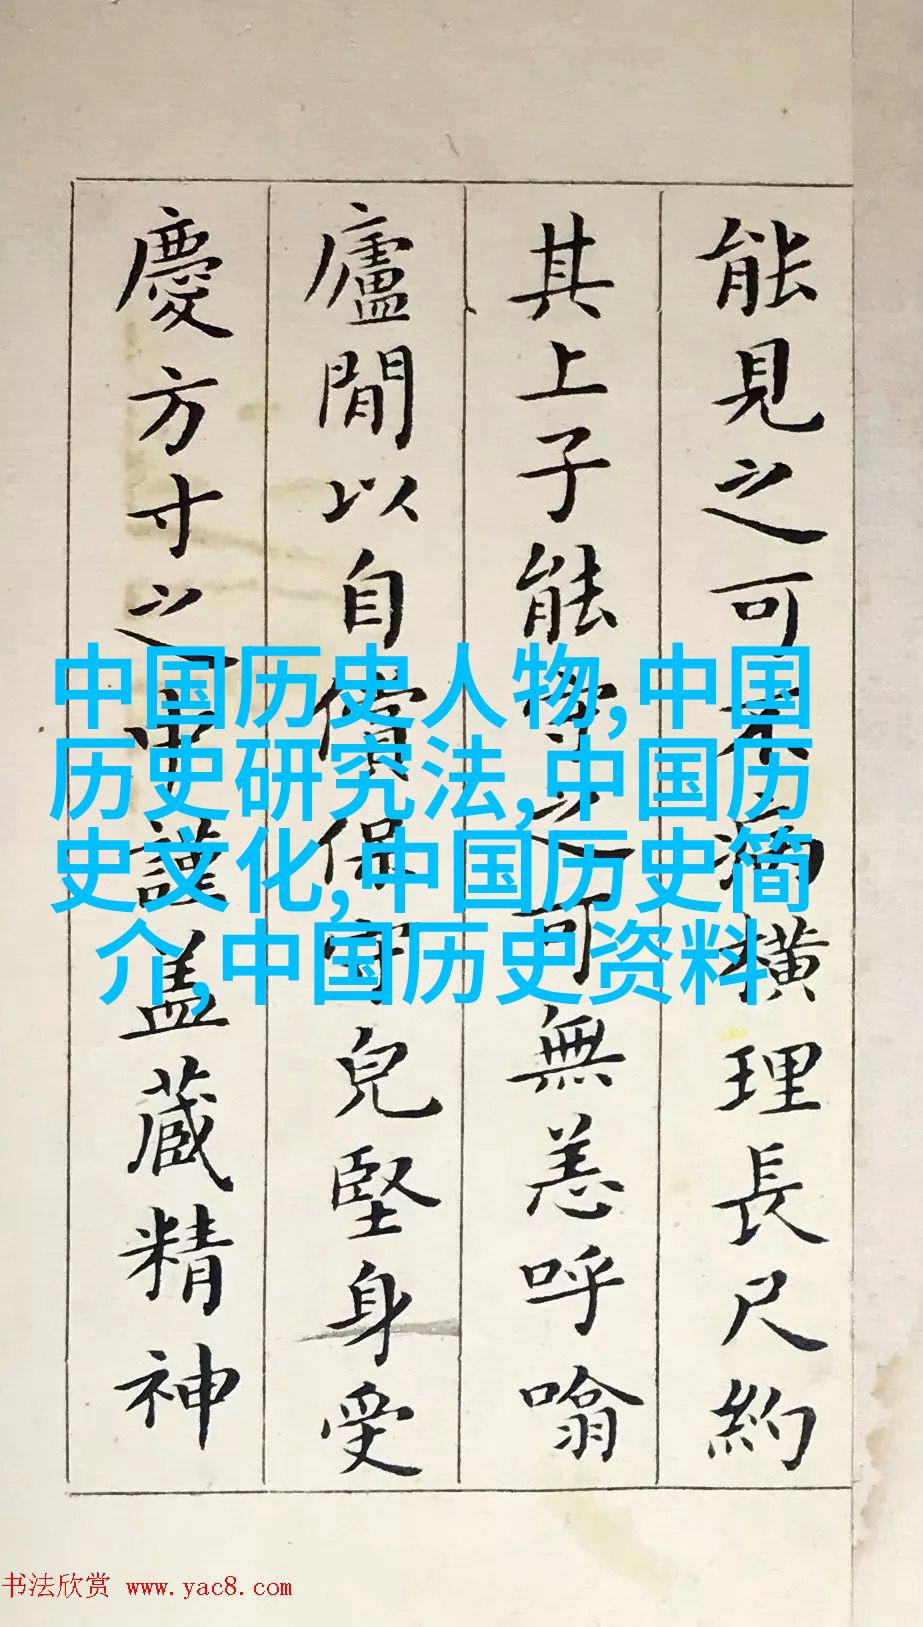 能見之可不病橫理長尺約
其上子能守之可無恙呼噏
廬閒以自償保守兒堅身受
慶方寸之中謹盖藏精神
中国历史人物,中国
历史研究法,中国历
史文化,中国历史简
介,中国历史资料
书法欣赏 www.yac8.com